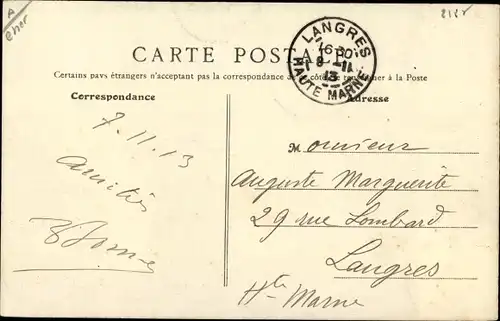 A
Cher
8125
CARTE POSTALE
Certains pays étrangers n'acceptant pas la correspondance de ce côté se renseigner à la Poste
LANGRES
16-30
8-11
13
HAUTE MARNE
Correspondance
Adresse
7.11.13
Amitiés
Monsieur
Auguste Marguerite
29 rue Lombard
Langres
Hte Marne